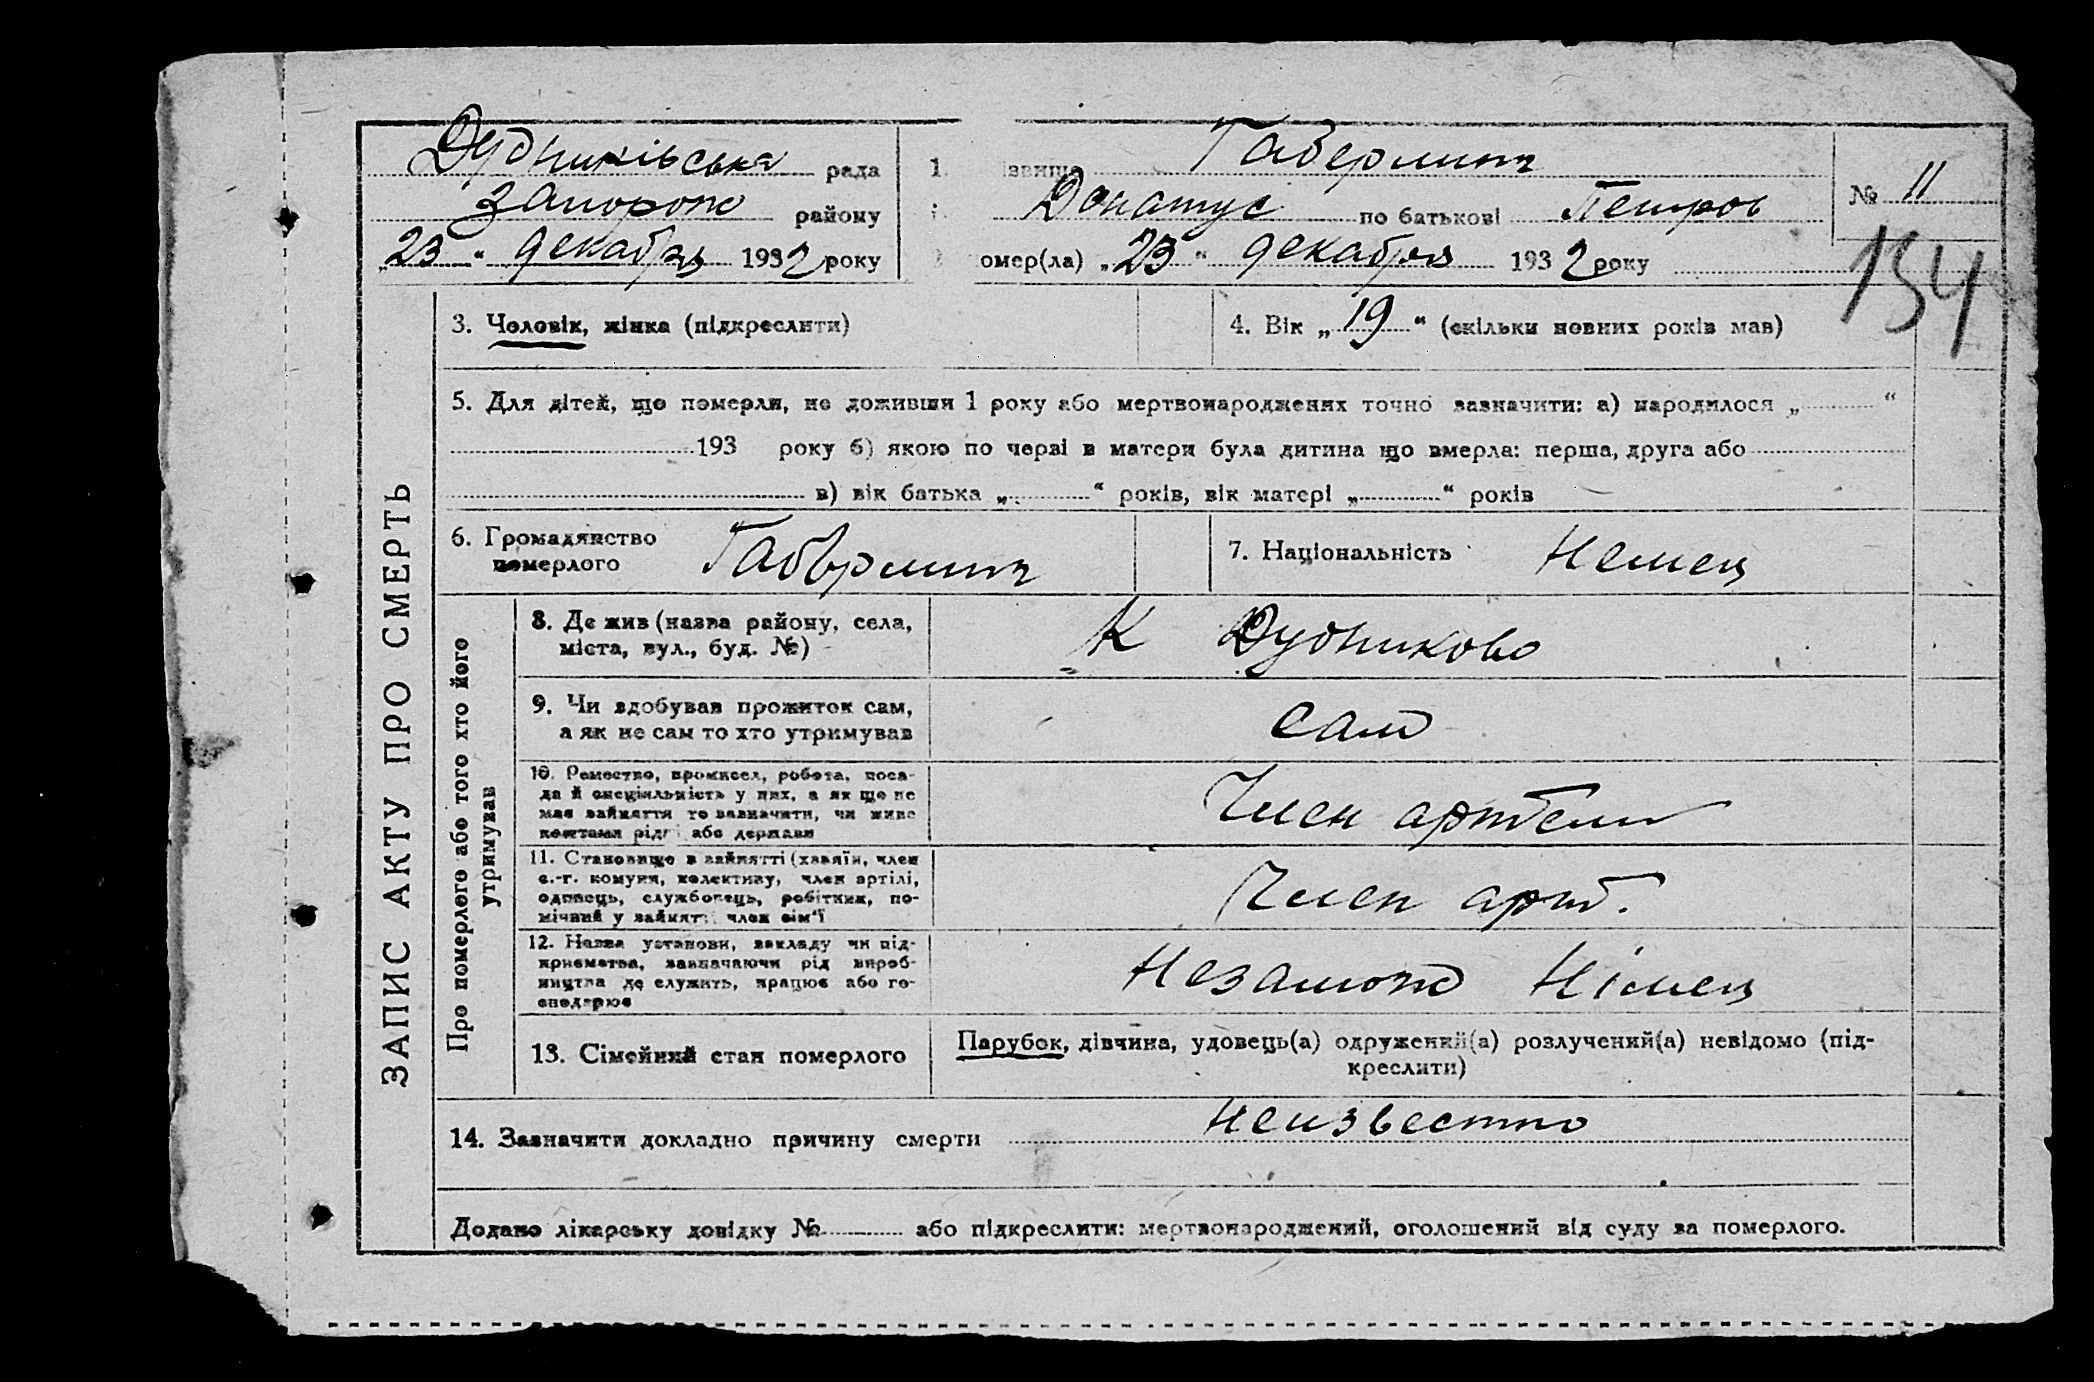 Дудниківська рада
Запорож району
„23“ декабря 1932 року
1. ізвище Габерлинг
Донатус по батькові Петров
омер(ла) „23“ декабря 1932 року
№ 11
154
ЗАПИС АКТУ ПРО СМЕРТЬ
3. Чоловік, жінка (підкреслити)
4. Вік „19“ (скільки повних років мав)
5. Для дітей, що померли, не доживши 1 року або мертвонароджених точно зазначити: а) народилося „ “
193 року б) якою по черві в матери була дитина що вмерла: перша, друга або
в) вік батька „ “ років, вік матері „ “ років
6. Громадянство
померлого
7. Національність Немец
Про померлого або того хто його
утримував
8. Де жив (назва району, села,
міста, вул., буд. №)
К Дудниково
9. Чи здобував прожиток сам,
а як не сам то хто утримував
сам
10. Ремество, промисел, робота, поса-
да й спеціяльність у них, а як що не
мав зайняття то зазначити, чи живе
коштами рідні або держави
Член артели
11. Становище в зайнятті (хазяїн, член
с.-г. комуни, колективу, член артілі,
одинець, службовець, робітник, по-
мічний у зайнятті член сім'ї
Член арт.
12. Назва установи, закладу чи під-
приємства, зазначаючи рід вироб-
ництва де служить, працює або го-
сподарює
Незамож Німец
13. Сімейний стан померлого
Парубок, дівчина, удовець(а) одружений(а) розлучений(а) невідомо (під-
креслити)
14. Зазначити докладно причину смерти неизвестно
Додано лікарську довідку № або підкреслити: мертвонароджений, оголошений від суду за померлого.